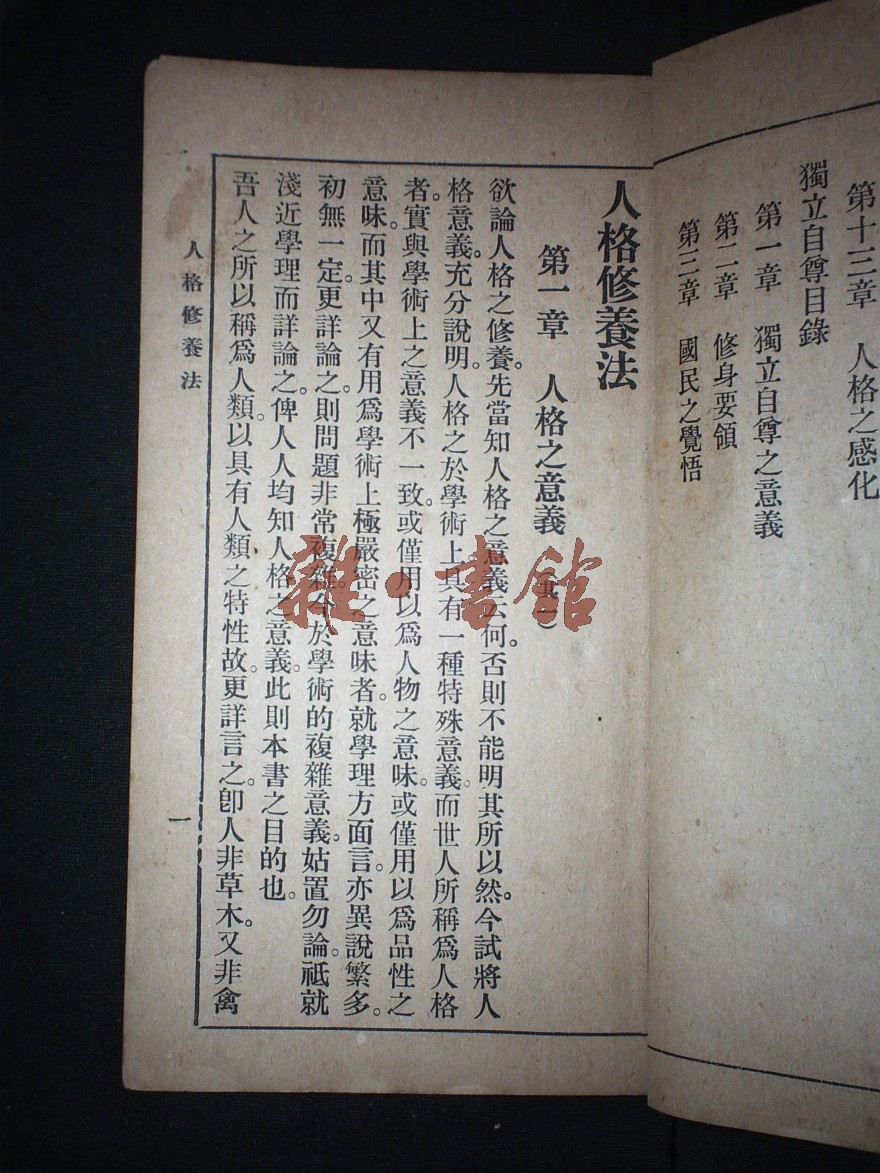 第十三章　人格之感化
獨立自尊目錄
第一章　獨立自尊之意義
第二章　修身要領
第三章　國民之覺悟
人格修養法
第一章　人格之意義（其一）
欲論人格之修養。先當知人格之意義云何。否則不能明其所以然。今試將人
格意義。充分說明。人格之於學術上。具有一種特殊意義。而世人所稱爲人格
者。實與學術上之意義不一致。或僅用以爲人物之意味。或僅用以爲品性之
意味。而其中又有用爲學術上極嚴密之意味者。就學理方面言。亦異說繁多。
初無一定。更詳論之。則問題非常複雜。今於學術的複雜意義。姑置勿論。祗就
淺近學理而詳論之。俾人人均知人格之意義。此則本書之目的也。
吾人之所以稱爲人類。以具有人類之特性故。更詳言之。卽人非草木。又非禽
人格修養法
一
雜·書館